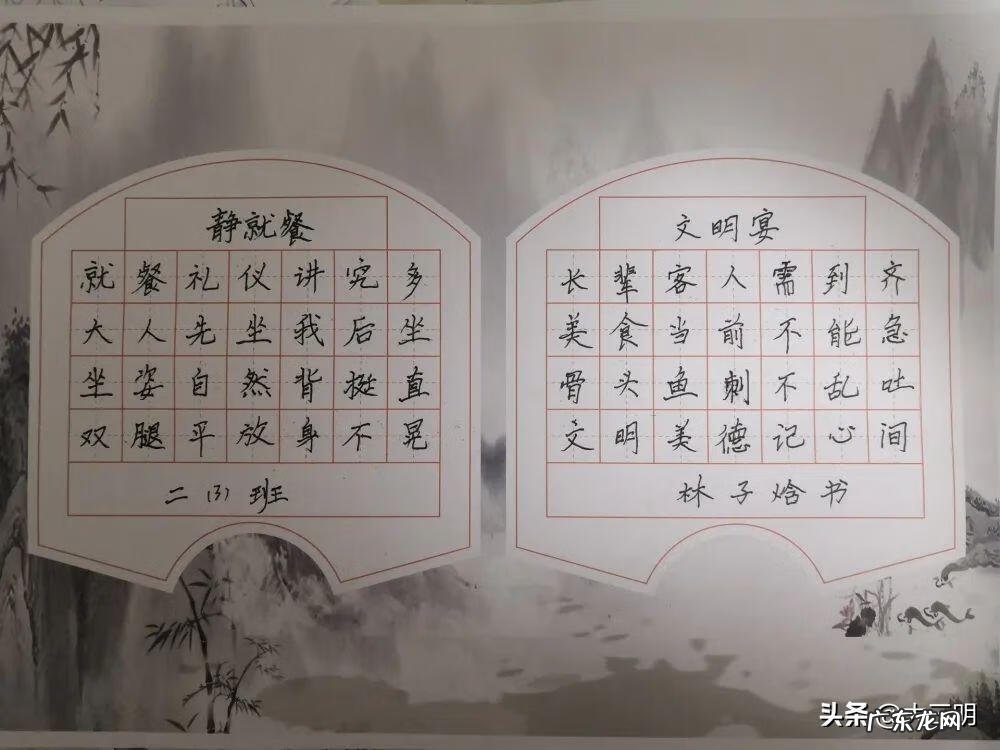 静就餐
就餐礼仪讲究多
大人先坐我后坐
坐姿自然背挺直
双腿平放身不晃
二(3)班
文明宴
长辈客人需到齐
美食当前不能急
骨头鱼刺不乱吐
文明美德记心间
林子焓书
头条
广东龙网